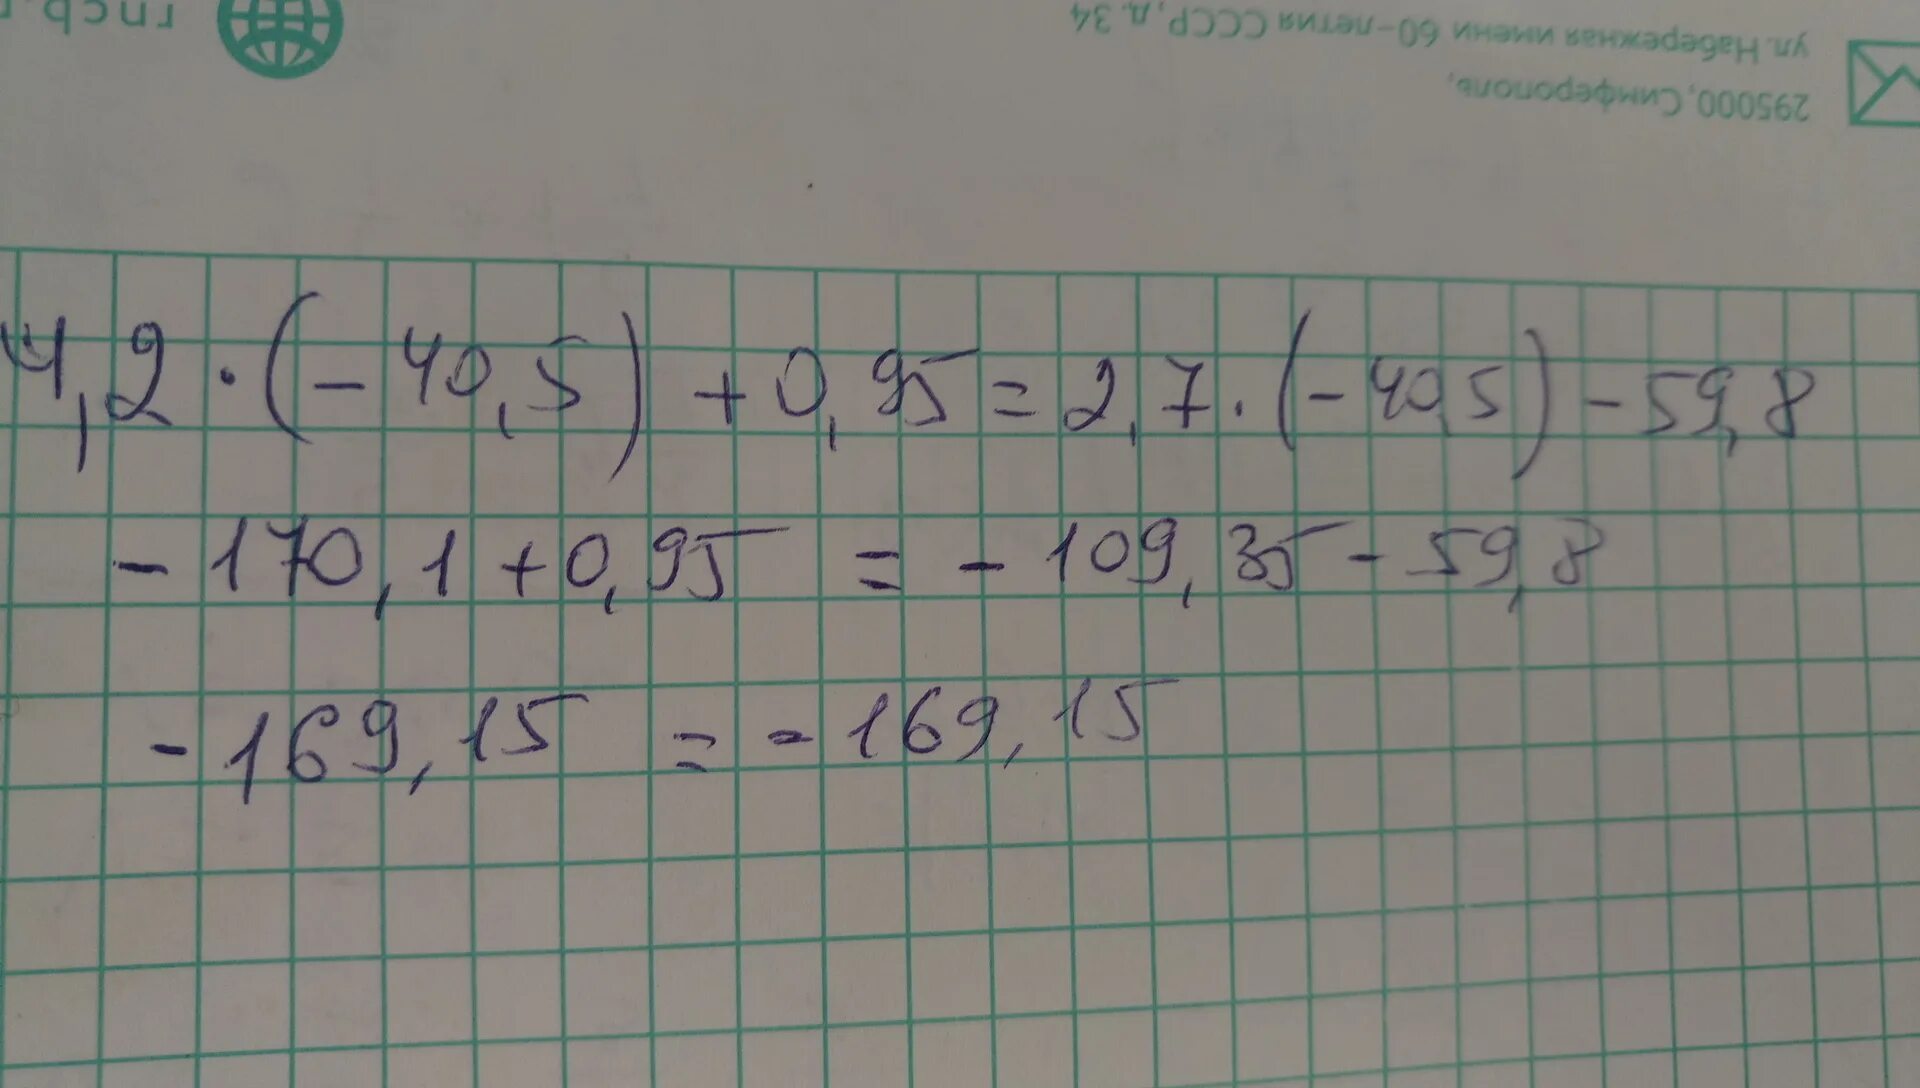 rncb.r
ул. Набережная имени 60-летия СССР, д. 34
295000, Симферополь,
4,2 · (-40,5) + 0,95 = 2,7 · (-40,5) - 59,8
- 170,1 + 0,95 = - 109,35 - 59,8
- 169,15 = - 169,15